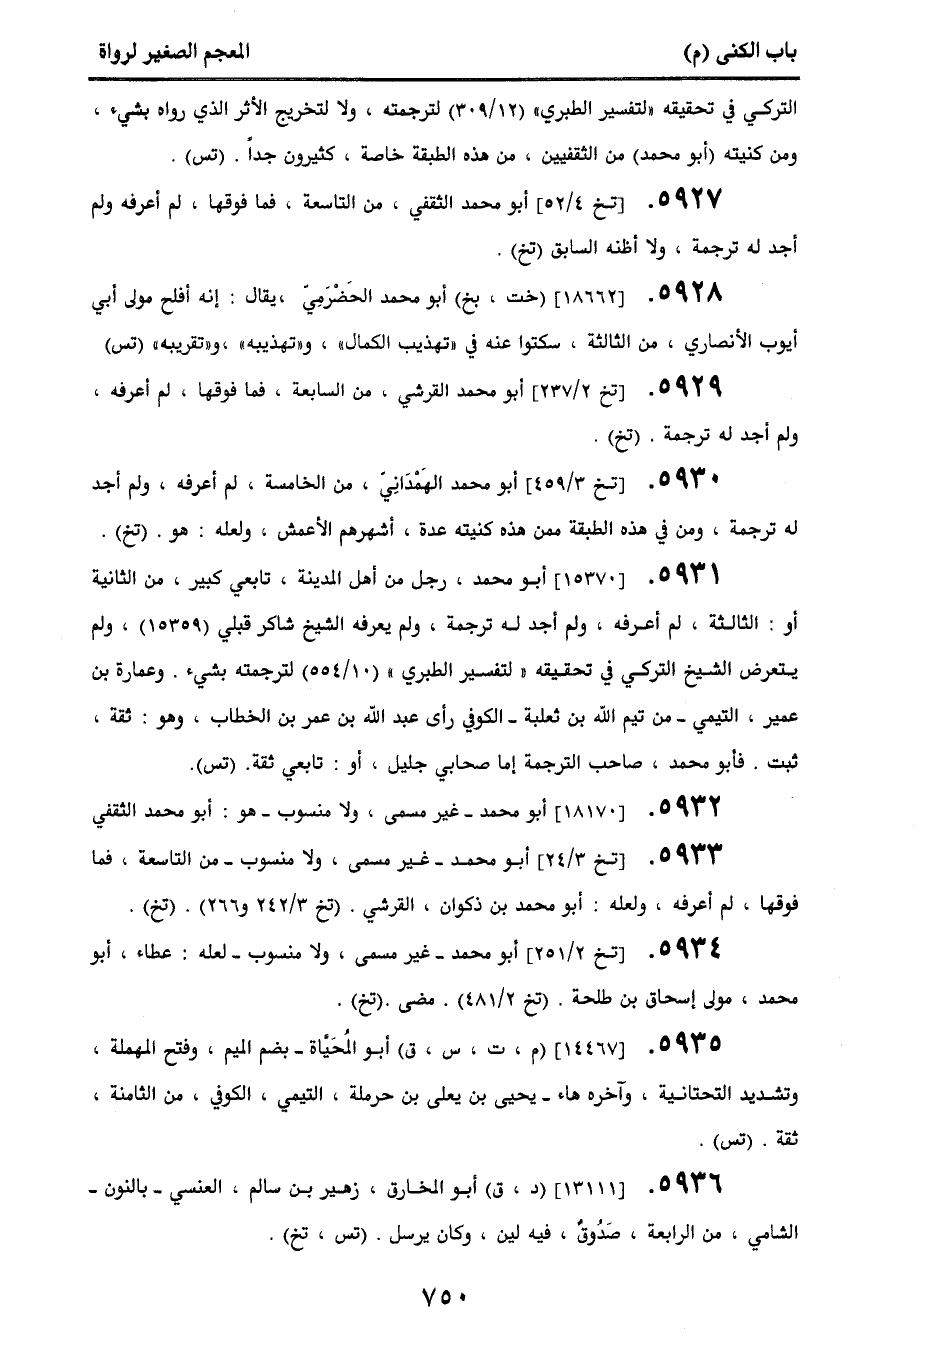 باب الكنى (م) المعجم الصغير لرواة
التركي في تحقيقه «لتفسير الطبري» (٣٠٩/١٢) لترجمته ، ولا لتخريج الأثر الذي رواه بشيء ،
ومن كنيته (أبو محمد) من الثقفيين ، من هذه الطبقة خاصة ، كثيرون جداً . (تس) .
٥٩٢٧. [تخ ٥٢/٤] أبو محمد الثقفي ، من التاسعة ، فما فوقها ، لم أعرفه ولم
أجد له ترجمة ، ولا أظنه السابق (تخ) .
٥٩٢٨. [١٨٦٦٢] (خت ، بخ) أبو محمد الحَضْرَمِيّ ،يقال : إنه أفلح مولى أبي
أيوب الأنصاري ، من الثالثة ، سكتوا عنه في «تهذيب الكمال» ، و«تهذيبه» ،و«تقريبه» (تس)
٥٩٢٩. [تخ ٢٣٧/٢] أبو محمد القرشي ، من السابعة ، فما فوقها ، لم أعرفه ،
ولم أجد له ترجمة . (تخ) .
٥٩٣٠. [تخ ٤٥٩/٣] أبو محمد الهَمْدَانِيّ ، من الخامسة ، لم أعرفه ، ولم أجد
له ترجمة ، ومن في هذه الطبقة ممن هذه كنيته عدة ، أشهرهم الأعمش ، ولعله : هو . (تخ) .
٥٩٣١. [١٥٣٧٠] أبو محمد ، رجل من أهل المدينة ، تابعي كبير ، من الثانية
أو : الثالثة ، لم أعرفه ، ولم أجد له ترجمة ، ولم يعرفه الشيخ شاكر قبلي (١٥٣٥٩) ، ولم
يتعرض الشيخ التركي في تحقيقه « لتفسير الطبري » (٥٥٤/١٠) لترجمته بشيء . وعمارة بن
عمير ، التيمي ـ من تيم الله بن ثعلبة ـ الكوفي رأى عبد الله بن عمر بن الخطاب ، وهو : ثقة ،
ثبت . فأبو محمد ، صاحب الترجمة إما صحابي جليل ، أو : تابعي ثقة. (تس).
٥٩٣٢. [١٨١٧٠] أبو محمد ـ غير مسمى ، ولا منسوب ـ هو : أبو محمد الثقفي
٥٩٣٣. [تخ ٢٤/٣] أبو محمد ـ غير مسمى ، ولا منسوب ـ من التاسعة ، فما
فوقها ، لم أعرفه ، ولعله : أبو محمد بن ذكوان ، القرشي . (تخ ٢٤٢/٣ و٢٦٦) . (تخ) .
٥٩٣٤. [تخ ٢٥١/٢] أبو محمد ـ غير مسمى ، ولا منسوب ـ لعله : عطاء ، أبو
محمد ، مولى إسحاق بن طلحة . (تخ ٤٨١/٢) . مضى .(تخ) .
٥٩٣٥. [١٤٤٦٧] (م ، ت ، س ، ق) أبو المُحَيَّاة ـ بضم الميم ، وفتح المهملة ،
وتشديد التحتانية ، وآخره هاء ـ يحيى بن يعلى بن حرملة ، التيمي ، الكوفي ، من الثامنة ،
ثقة . (تس) .
٥٩٣٦. [١٣١١١] (د ، ق) أبو المخارق ، زهير بن سالم ، العنسي ـ بالنون ـ
الشامي ، من الرابعة ، صَدُوقٌ ، فيه لين ، وكان يرسل . (تس ، تخ) .
٧٥٠